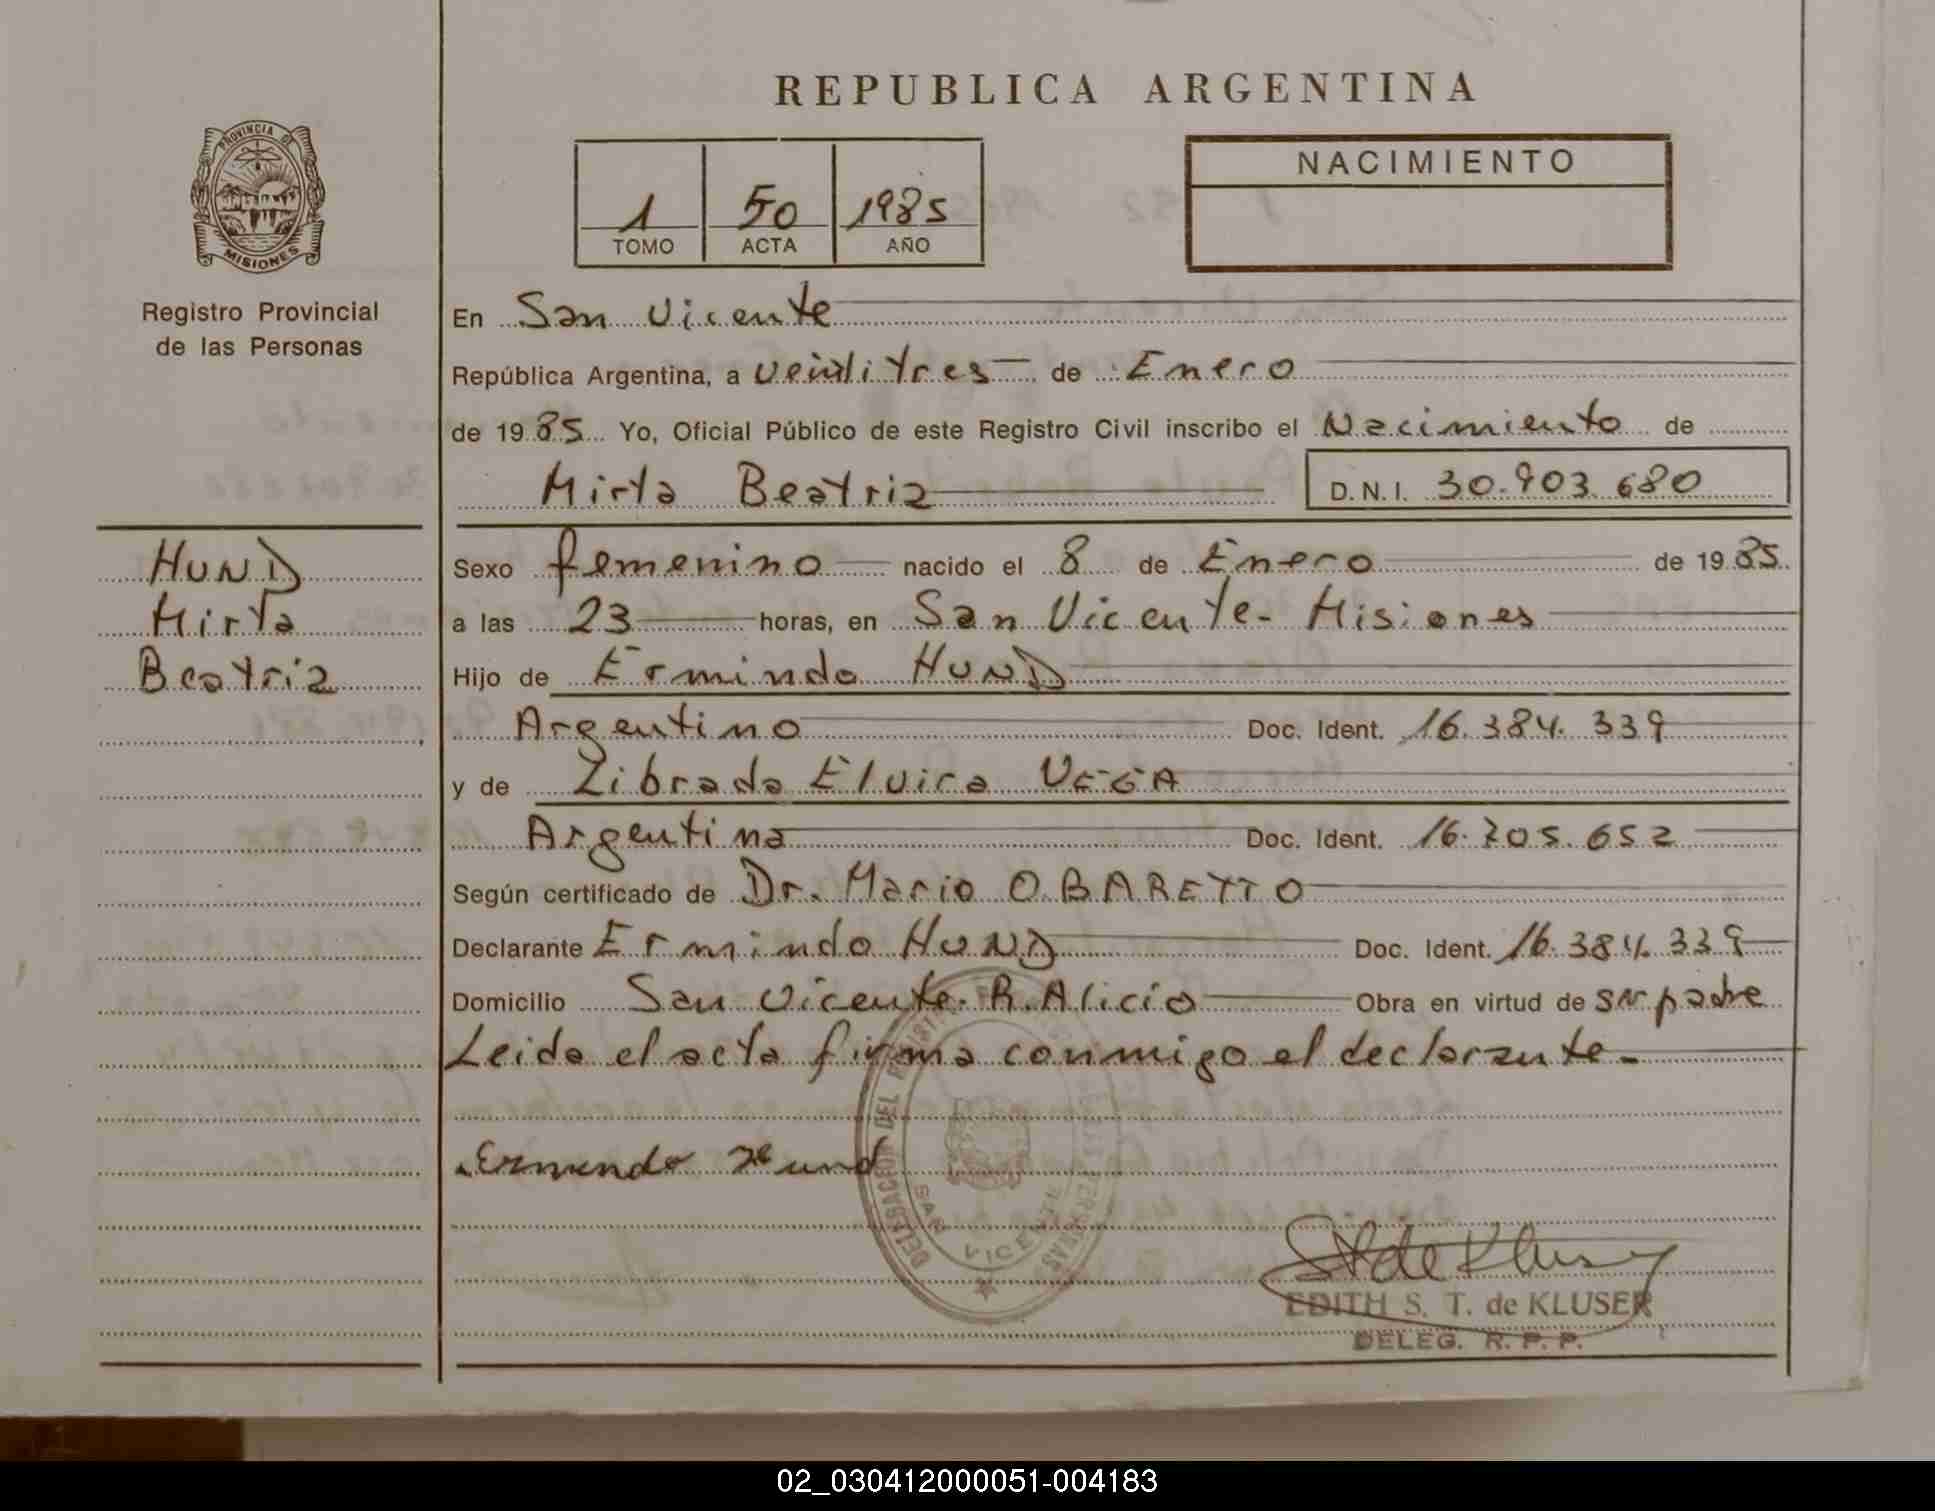 REPUBLICA ARGENTINA
PROVINCIA DE MISIONES
Registro Provincial
de las Personas
1 50 1985
TOMO ACTA AÑO
NACIMIENTO
En San Vicente
República Argentina, a veintitres de Enero
de 1985 Yo, Oficial Público de este Registro Civil inscribo el Nacimiento de
Mirta Beatriz D.N.I. 30.903.680
HUND
Mirta
Beatriz
Sexo femenino nacido el 8 de Enero de 1985
a las 23 horas, en San Vicente - Misiones
Hijo de Ermindo HUND
Argentino Doc. Ident. 16.384.339
y de Librada Elvira VEGA
Argentina Doc. Ident. 16.205.652
Según certificado de Dr. Mario O. BARETTO
Declarante Ermindo HUND Doc. Ident. 16.384.339
Domicilio San Vicente. R. Alicio Obra en virtud de ser padre
Leida el acta firma conmigo el declarante.-
Ermindo Hund
DELEGACION DEL REGISTRO PROVINCIAL DE LAS PERSONAS
SAN VICENTE
EDITH S. T. de KLUSER
DELEG. R. P. P.
02_030412000051-004183